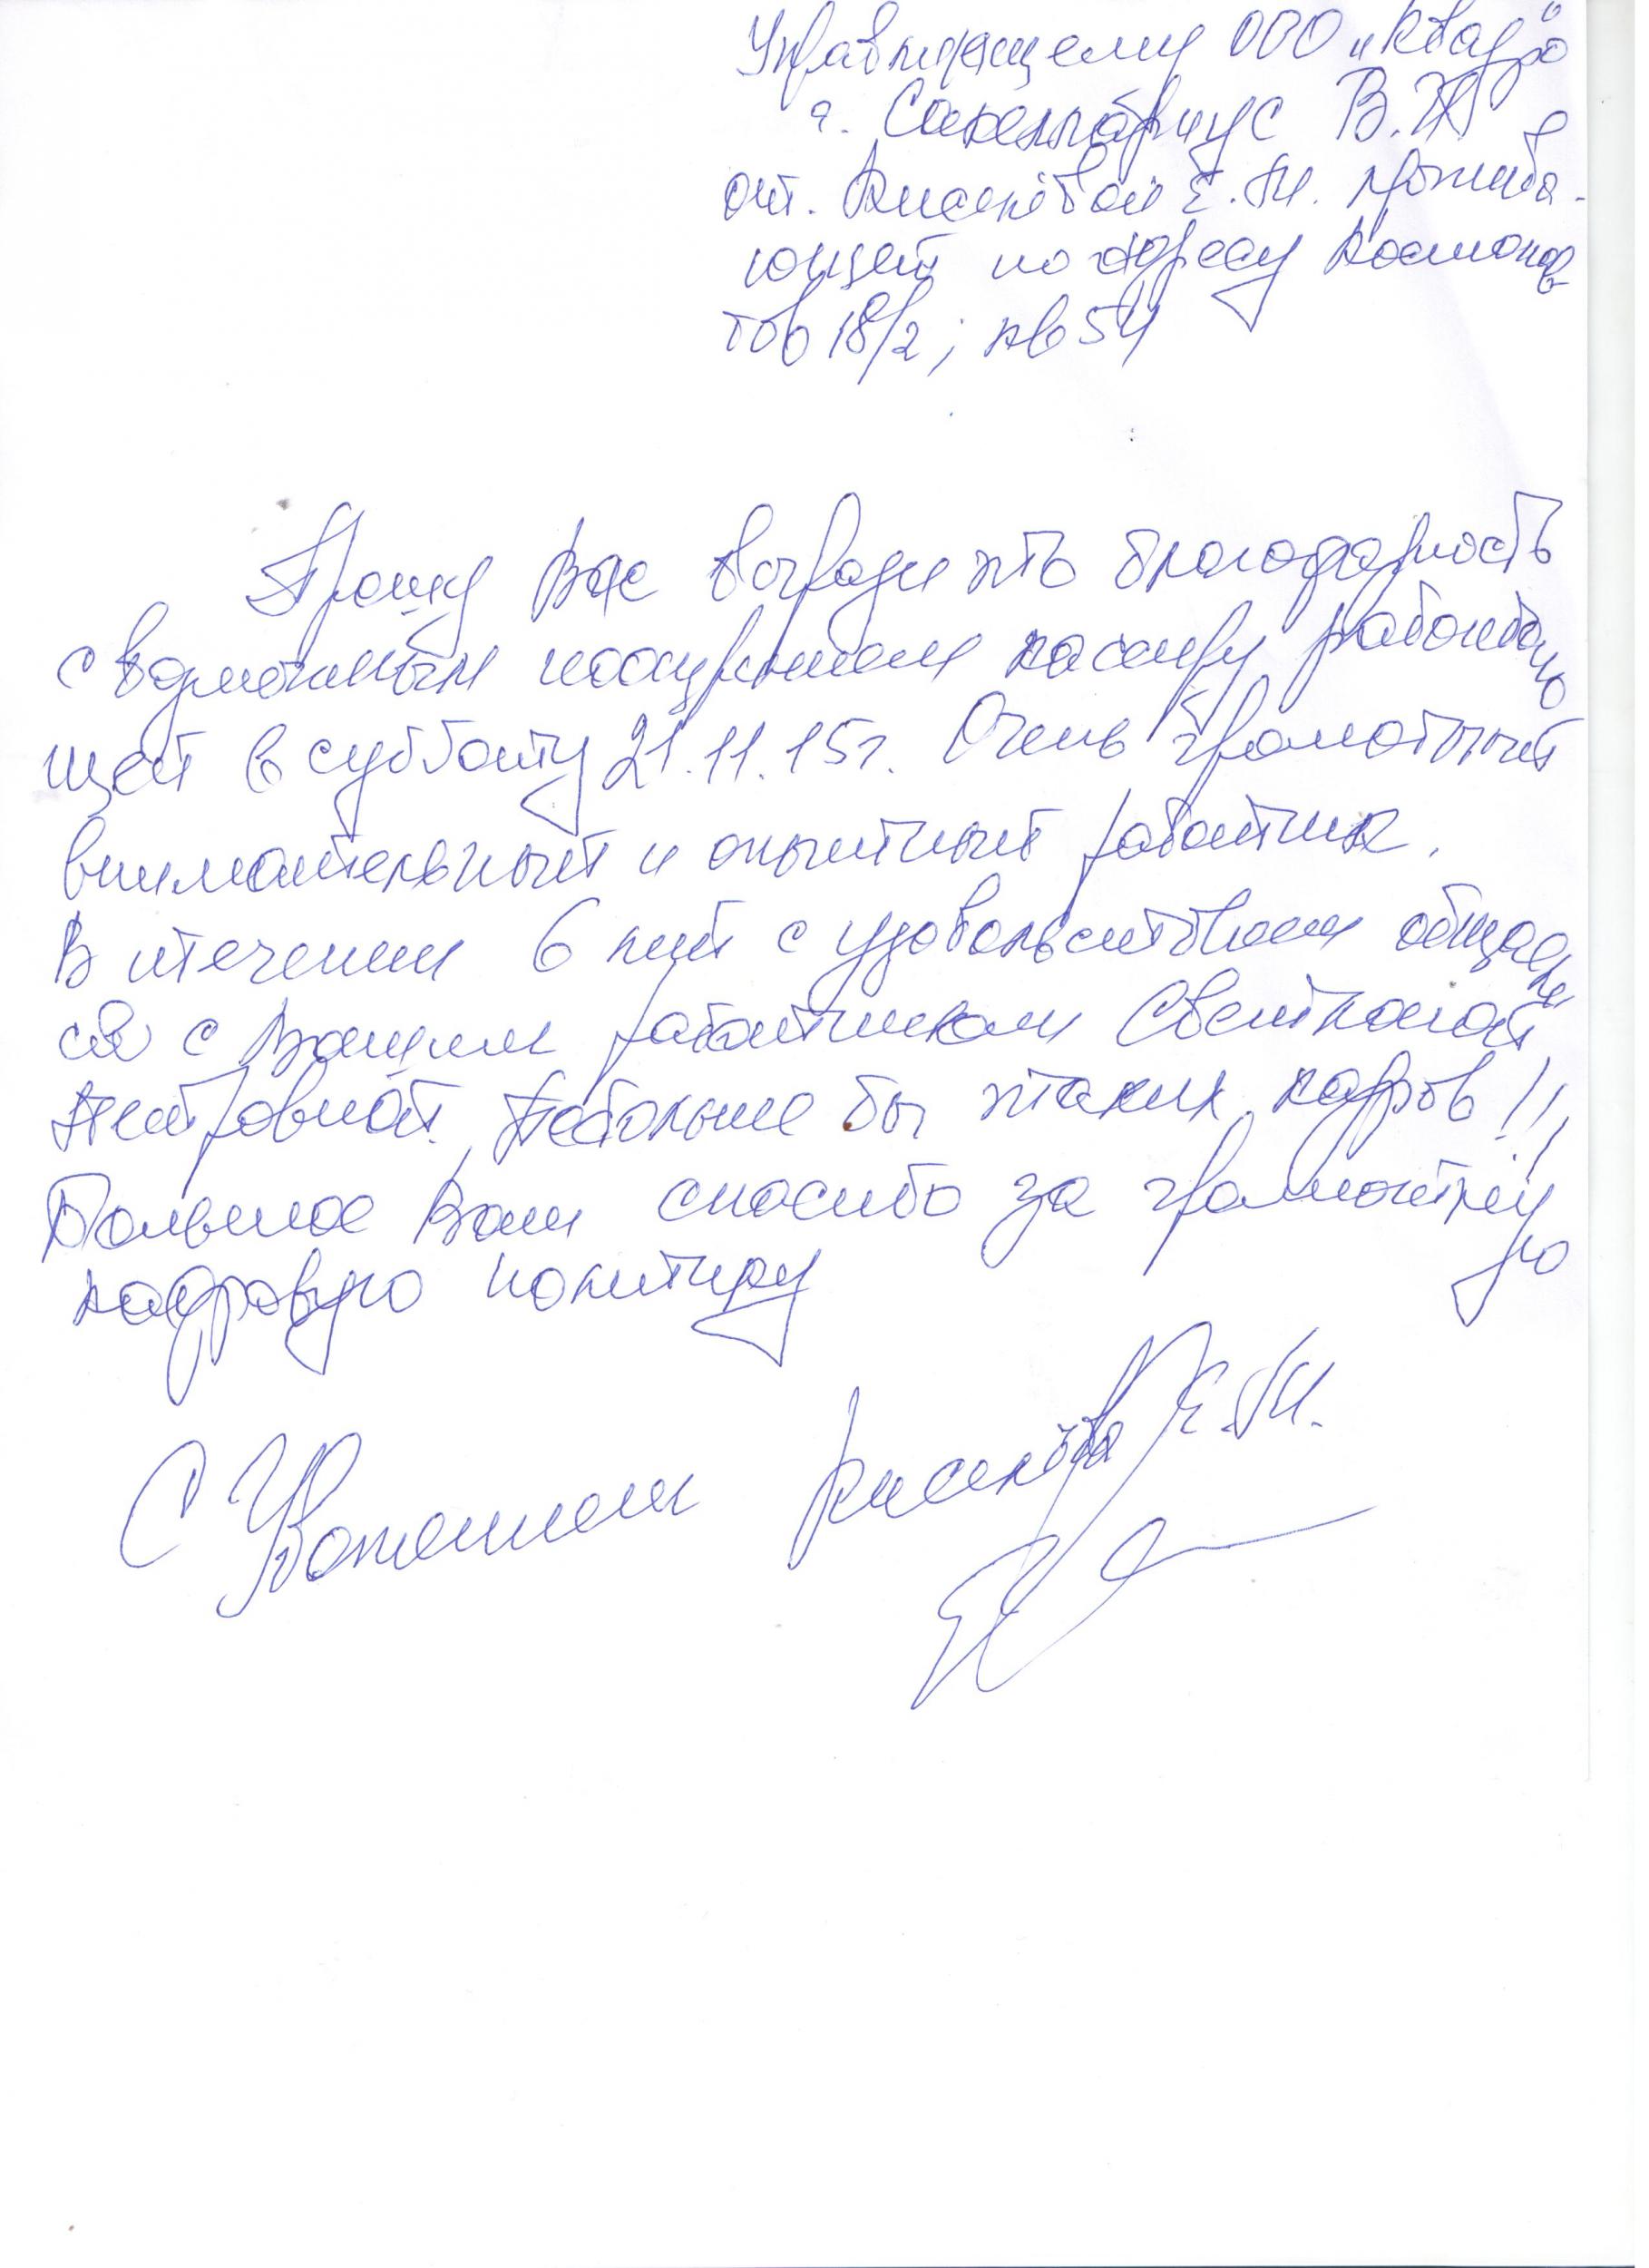 Управляющему ООО "Квадро"
г. Сакеллариус В. П
от. Киселёвой Е. М. прожива-
ющей по адресу Космонав
тов 18/2; кв 54
Прошу Вас выразить благодарность
с возможным поощрением кассиру работаю
щей в субботу 21.11.15г. Очень грамотный
внимательный и опытный работник.
В течении 6 лет с удовольствием общаем
ся с Вашим работником Светланой
Петровной. Побольше бы таких кадров!!!
Большое Вам спасибо за грамотную
кадровую политику
С Уважением Киселёва Е. М.